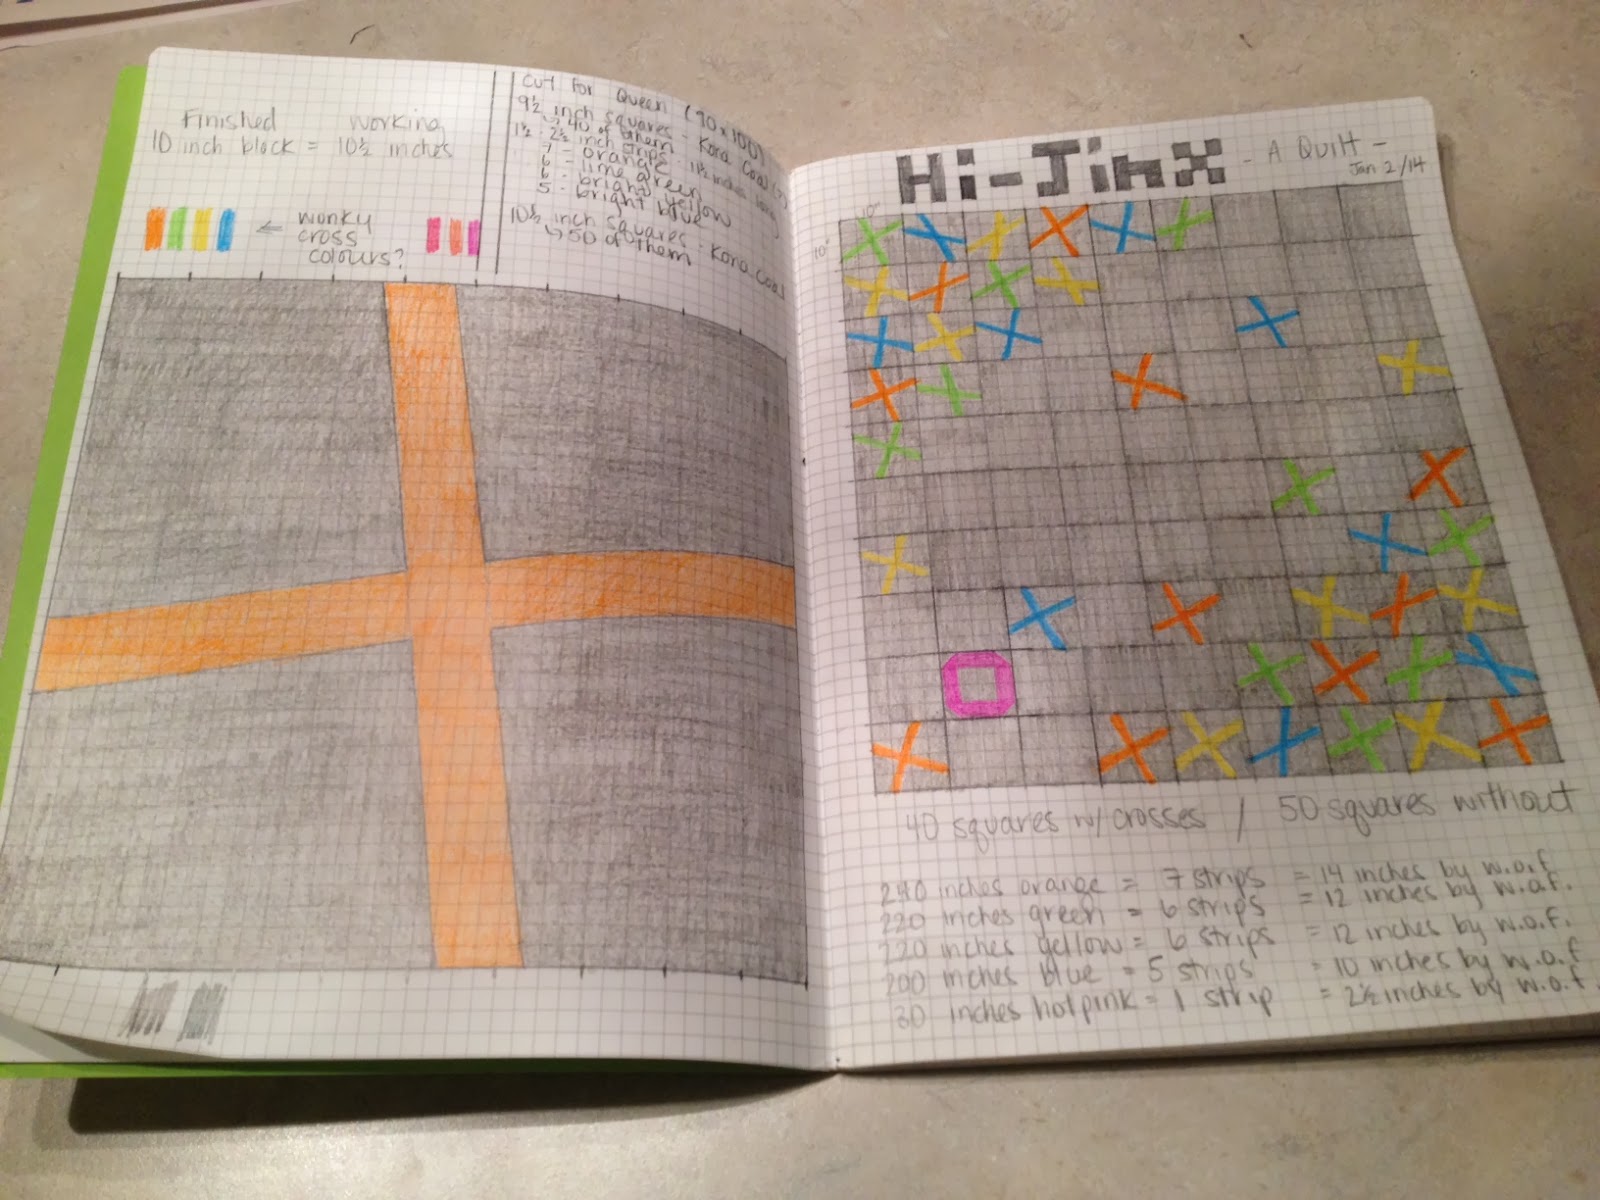 Finished working
10 inch block = 10½ inches
← wonky
cross
colours?
Cut for Queen (90x100)
9½ inch squares - Kona Coal
↳ 40 of them
1½ - 2½ inch strips - 11½ inches
7 - orange
6 - lime green
6 - bright yellow
5 - bright blue
10½ inch squares - Kona Coal
↳ 50 of them
Hi-JinX - A Quilt -
Jan 2/14
10"
10"
40 squares w/ crosses / 50 squares without
240 inches orange = 7 strips = 14 inches by w.o.f.
220 inches green = 6 strips = 12 inches by w.o.f.
220 inches yellow = 6 strips = 12 inches by w.o.f.
200 inches blue = 5 strips = 10 inches by w.o.f
30 inches hot pink = 1 strip = 2½ inches by w.o.f.